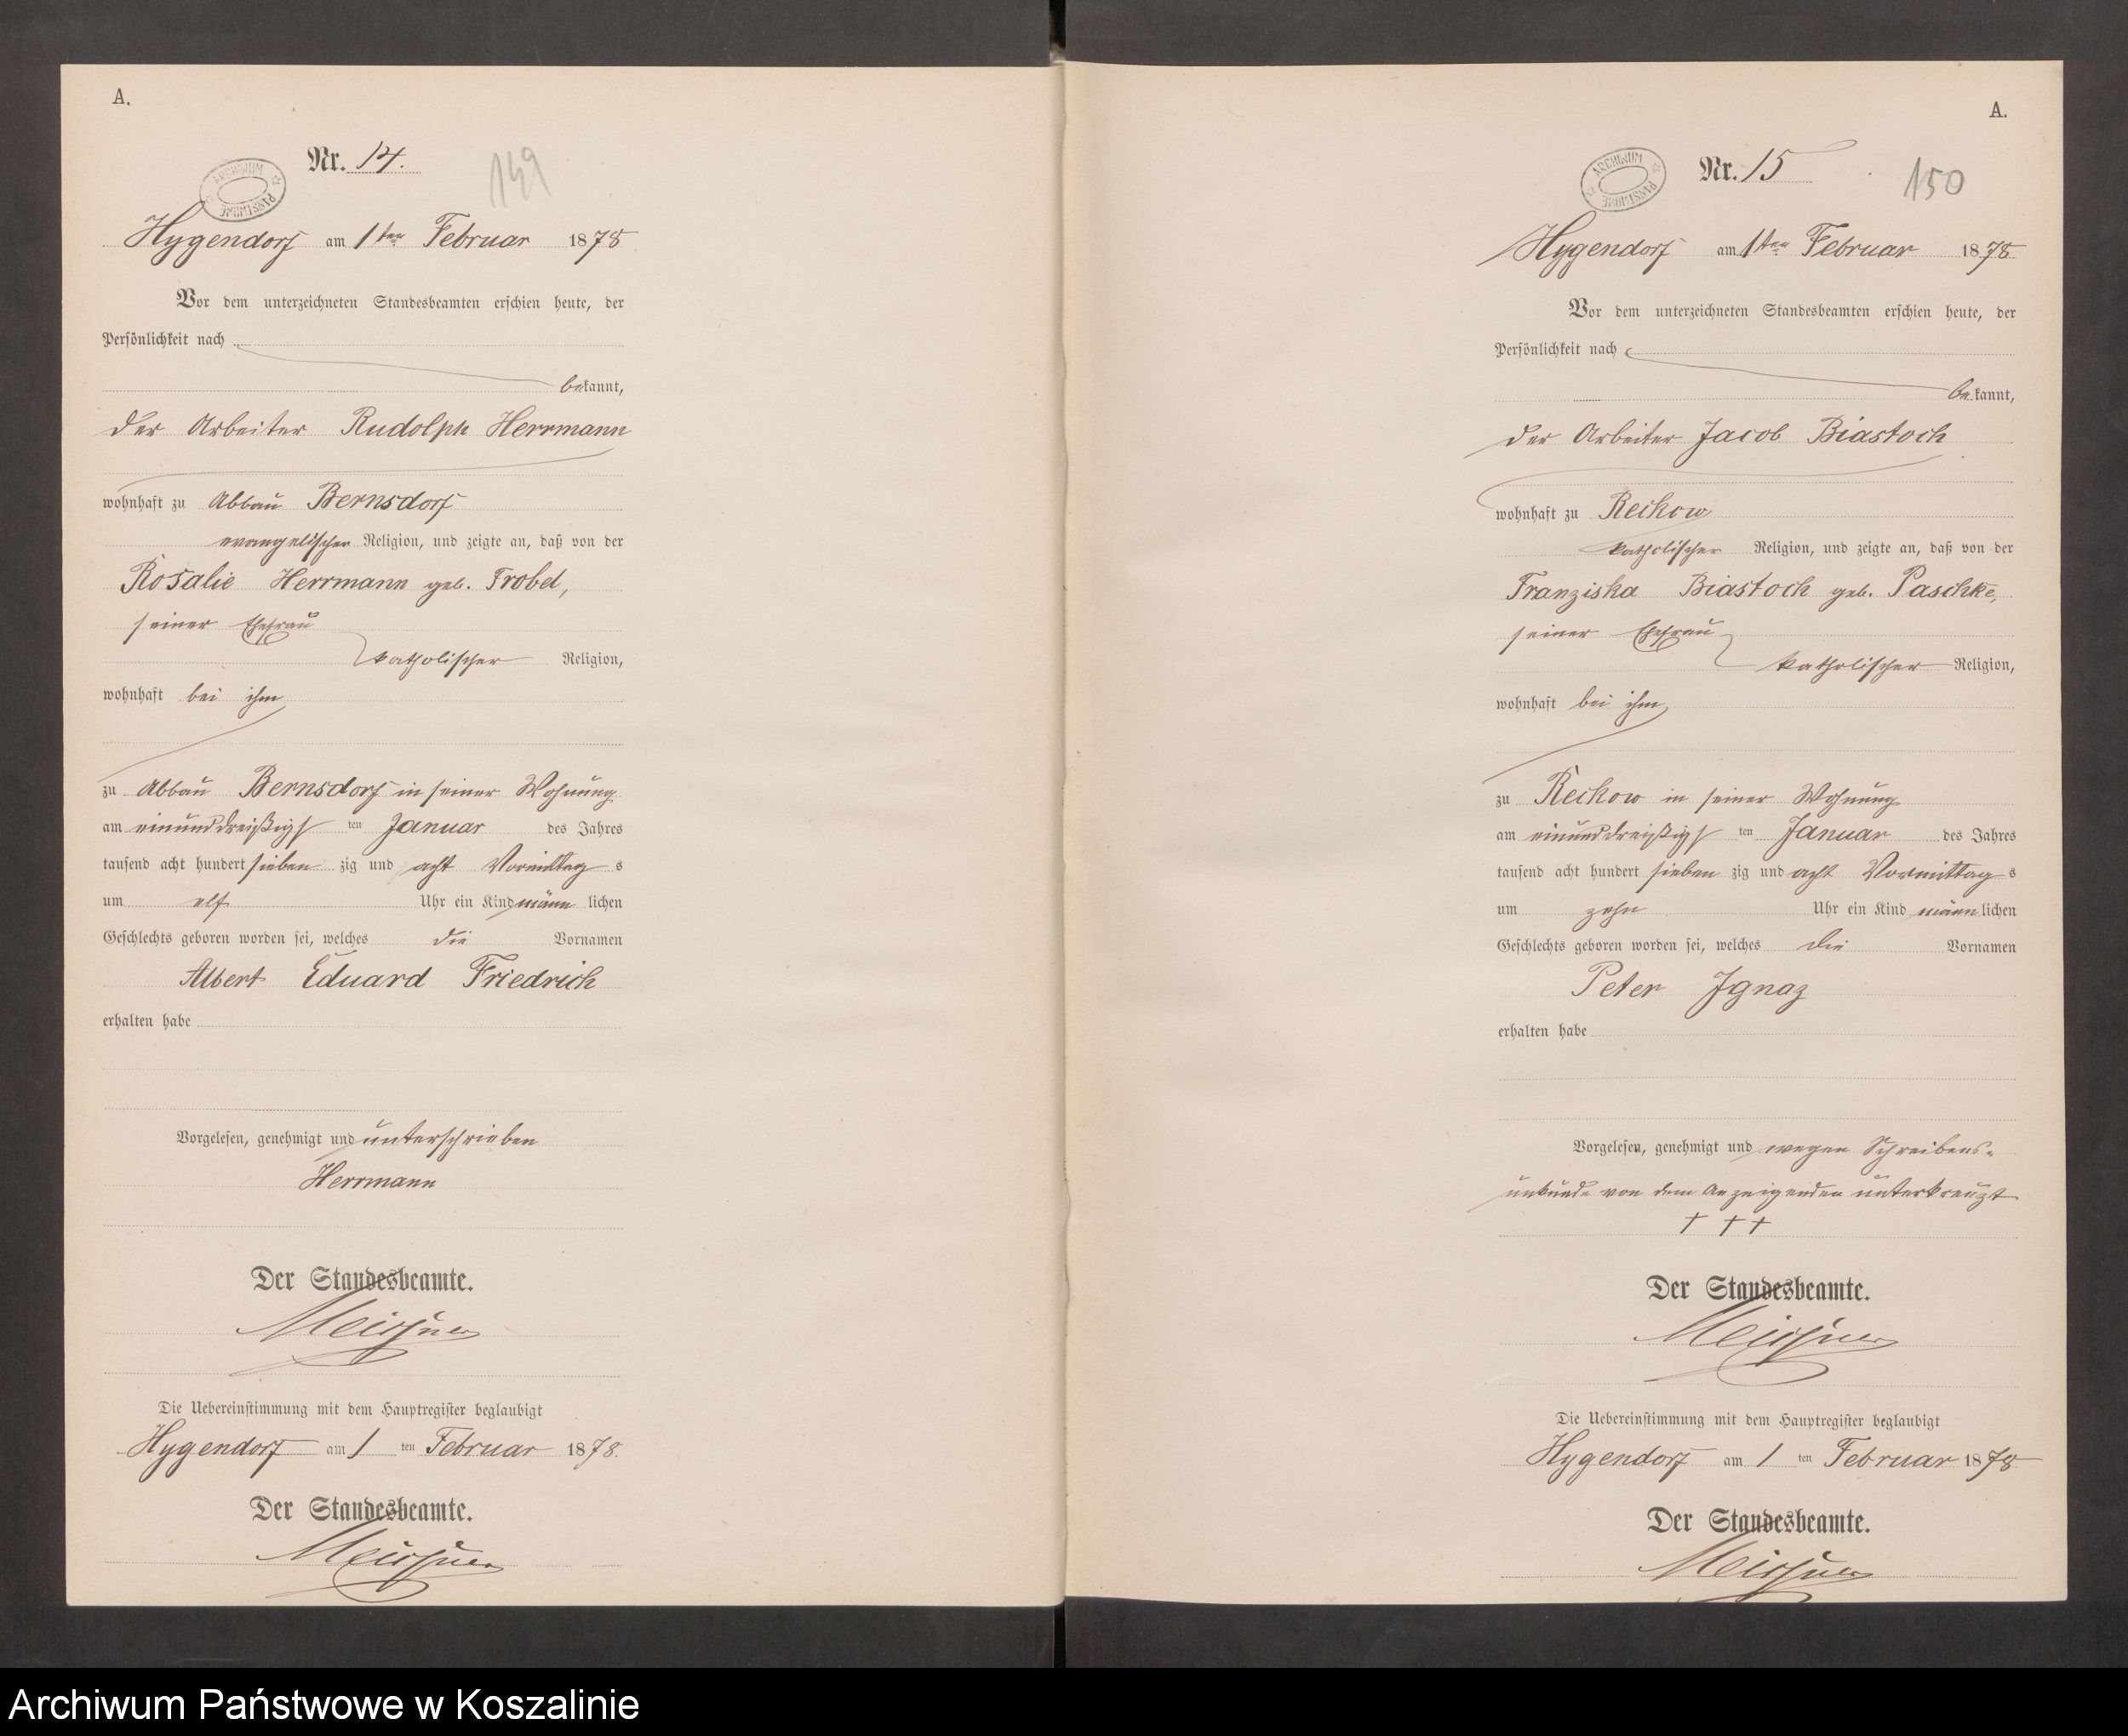 A.
Nr. 14.
149
ARCHIWUM PAŃSTWOWE
Hygendorf am 1ten Februar 1878
Vor dem unterzeichneten Standesbeamten erschien heute, der
Persönlichkeit nach
bekannt,
der Arbeiter Rudolph Herrmann
wohnhaft zu Abbau Bernsdorf
evangelischer Religion, und zeigte an, daß von der
Rosalie Herrmann geb. Trobel,
seiner Ehefrau
katholischer Religion,
wohnhaft bei ihm
zu Abbau Bernsdorf in seiner Wohnung
am einunddreißigsten Januar des Jahres
tausend acht hundert siebenzig und acht Vormittags
um elf Uhr ein Kind männlichen
Geschlechts geboren worden sei, welches die Vornamen
Albert Eduard Friedrich
erhalten habe
Vorgelesen, genehmigt und unterschrieben
Herrmann
Der Standesbeamte.
Meissner
Die Uebereinstimmung mit dem Hauptregister beglaubigt
Hygendorf am 1ten Februar 1878.
Der Standesbeamte.
Meissner
A.
Nr. 15
150
ARCHIWUM PAŃSTWOWE
Hygendorf am 1ten Februar 1878
Vor dem unterzeichneten Standesbeamten erschien heute, der
Persönlichkeit nach
bekannt,
der Arbeiter Jacob Biastoch
wohnhaft zu Reckow
katholischer Religion, und zeigte an, daß von der
Franziska Biastoch geb. Paschke,
seiner Ehefrau
katholischer Religion,
wohnhaft bei ihm
zu Reckow in seiner Wohnung
am einunddreißigsten Januar des Jahres
tausend acht hundert siebenzig und acht Vormittags
um zehn Uhr ein Kind männlichen
Geschlechts geboren worden sei, welches die Vornamen
Peter Ignaz
erhalten habe
Vorgelesen, genehmigt und wegen Schreibens-
unkunde von dem Anzeigenden unterkreuzt
+ + +
Der Standesbeamte.
Meissner
Die Uebereinstimmung mit dem Hauptregister beglaubigt
Hygendorf am 1ten Februar 1878
Der Standesbeamte.
Meissner
Archiwum Państwowe w Koszalinie